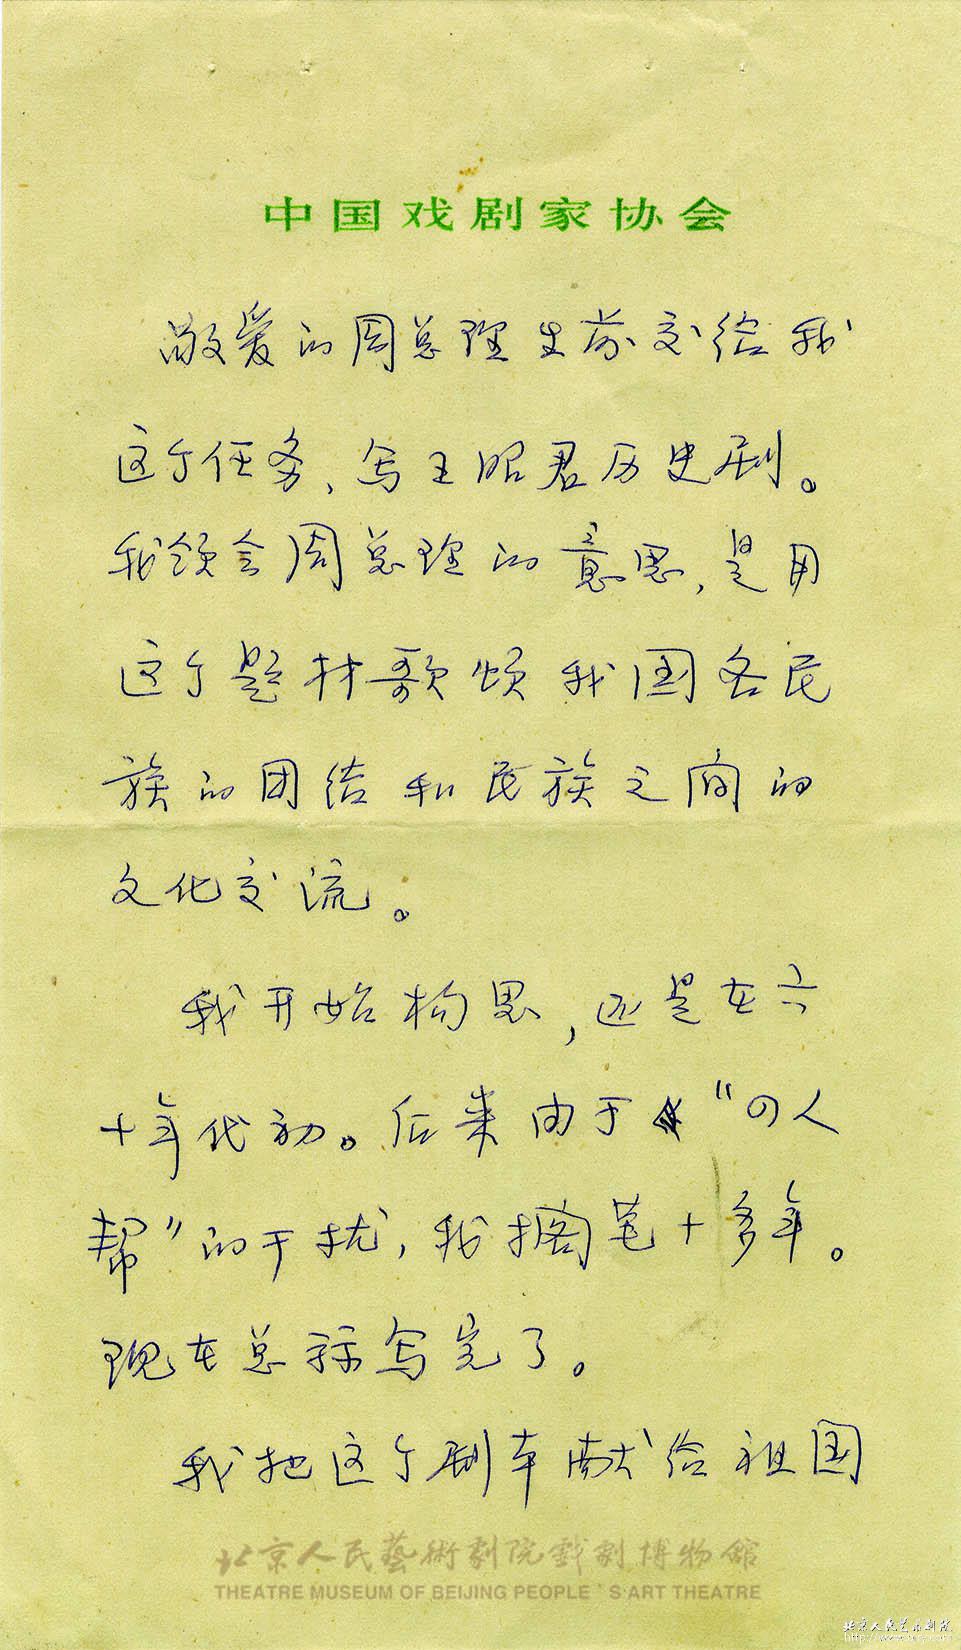 中国戏剧家协会
敬爱的周总理生前交给我
这个任务、写王昭君历史剧。
我领会周总理的意思,是用
这个题材歌颂我国各民
族的团结和民族之间的
文化交流。
我开始构思,还是在六
十年代初。后来由于“四人
帮”的干扰,我搁笔十多年。
现在总算写完了。
我把这个剧本献给祖国
北京人民藝術劇院戲劇博物館
THEATRE MUSEUM OF BEIJING PEOPLE`S ART THEATRE
北京人民艺术剧院